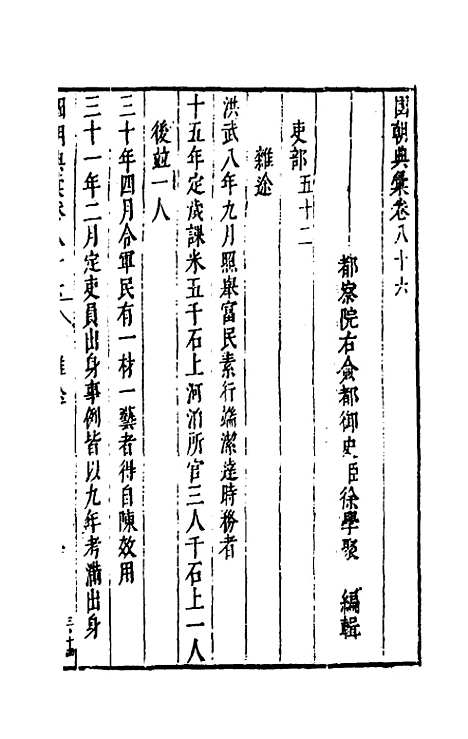 國朝典彙卷八十六
都察院右僉都御史臣徐學聚 編輯
吏部五十二
雜途
洪武八年九月照舉富民素行端潔達時務者
十五年定歲課米五千石上河泊所官三人千石上一人
後竝一人
三十年四月令軍民有一材一藝者得自陳效用
三十一年二月定吏員出身事例皆以九年考滿出身
國朝典彙卷八十六 雜途